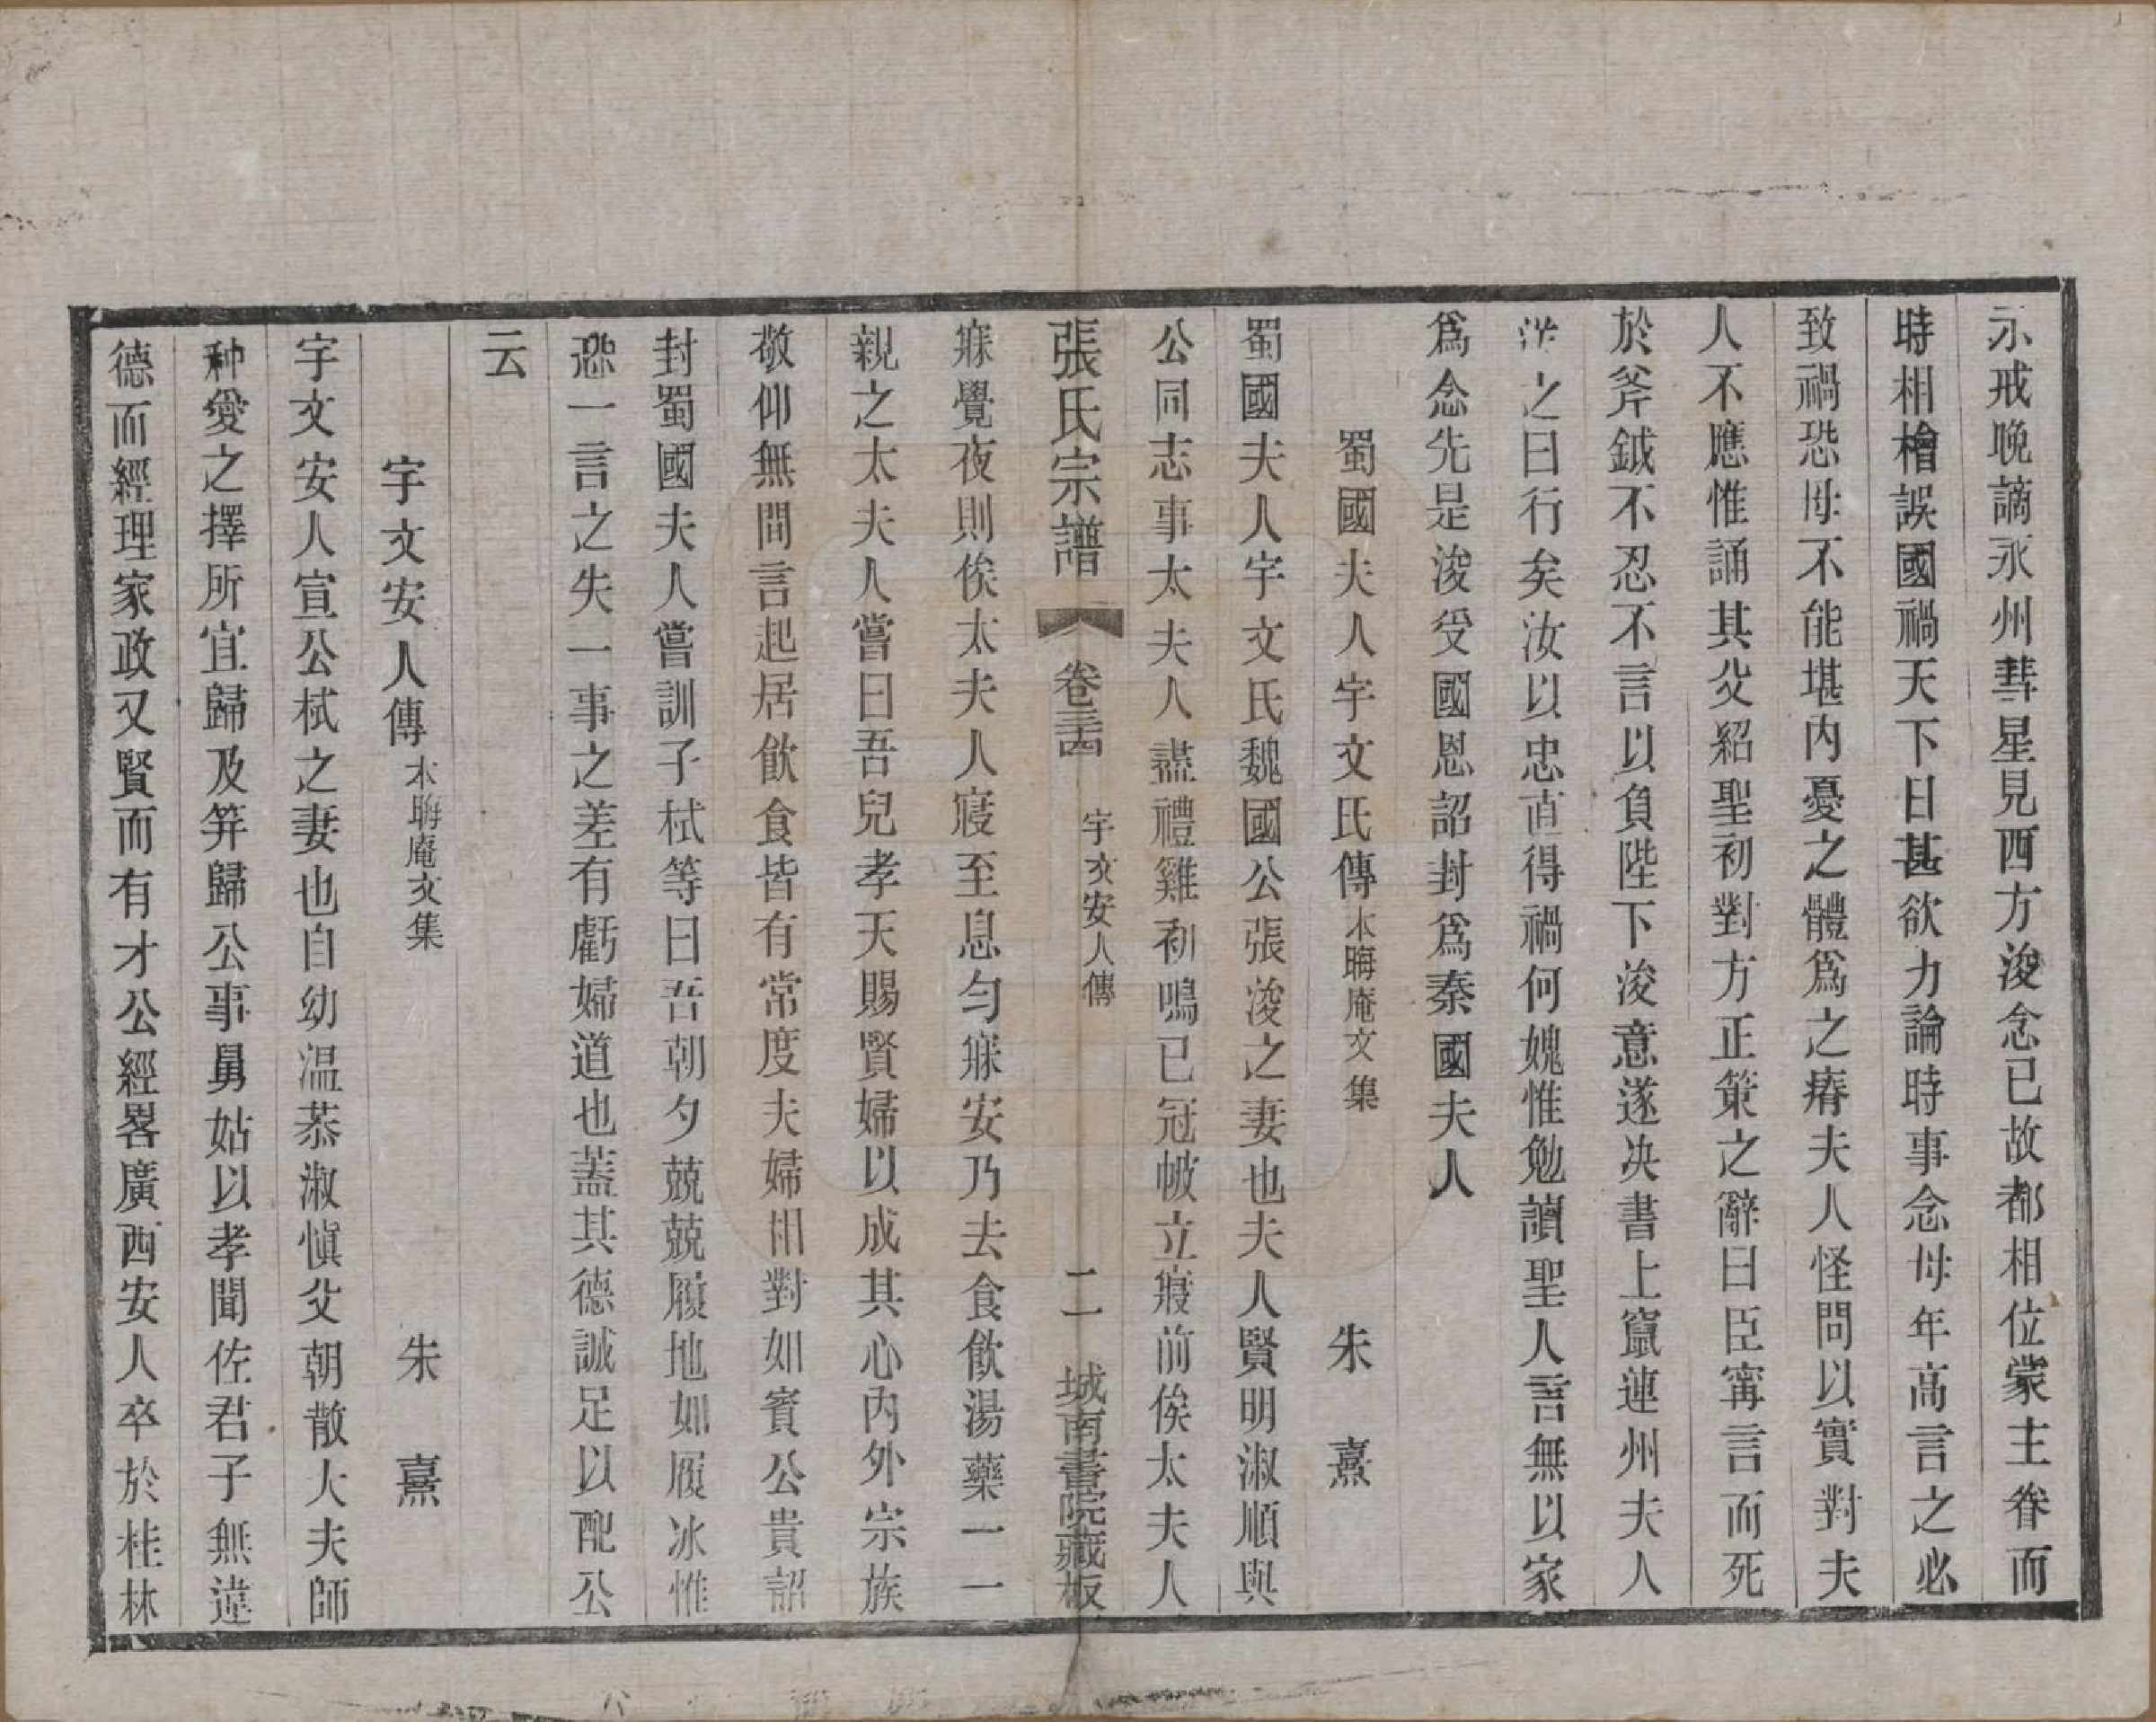 示戒晚謫永州彗星見西方浚念已故都相位蒙主眷而
時相檜誤國禍天下日甚欲力論時事念母年高言之必
致禍恐母不能堪内憂之體爲之瘠夫人怪問以實對夫
人不應惟誦其父紹聖初對方正策之辭曰臣寧言而死
於斧鉞不忍不言以負陛下浚意遂决書上竄蓮州夫人
之曰行矣汝以忠直得禍何媿惟勉讀聖人言無以家
爲念先是浚受國恩詔封爲秦國夫人
蜀國夫人宇文氏傳本晦庵文集 朱熹
蜀國夫人宇文氏魏國公張浚之妻也夫人賢明淑順與
公同志事太夫人盡禮雞初鳴已冠帔立寢前俟太夫人
張氏宗譜 卷三四 宇文安人傳 二 城南書院藏板
寐覺夜則俟太夫人寢至息勻寐安乃去食飲湯藥一一
親之太夫人嘗曰吾兒孝天賜賢婦以成其心内外宗族
敬仰無間言起居飲食皆有常度夫婦相對如賓公貴詔
封蜀國夫人嘗訓子栻等曰吾朝夕兢兢履地如履冰惟
恐一言之失一事之差有虧婦道也蓋其德誠足以配公
云
宇文安人傳本晦庵文集 朱熹
宇文安人宣公栻之妻也自幼温恭淑愼父朝散大夫師
种愛之擇所宜歸及笄歸公事舅姑以孝聞佐君子無違
德而經理家政又賢而有才公經畧廣西安人卒於桂林